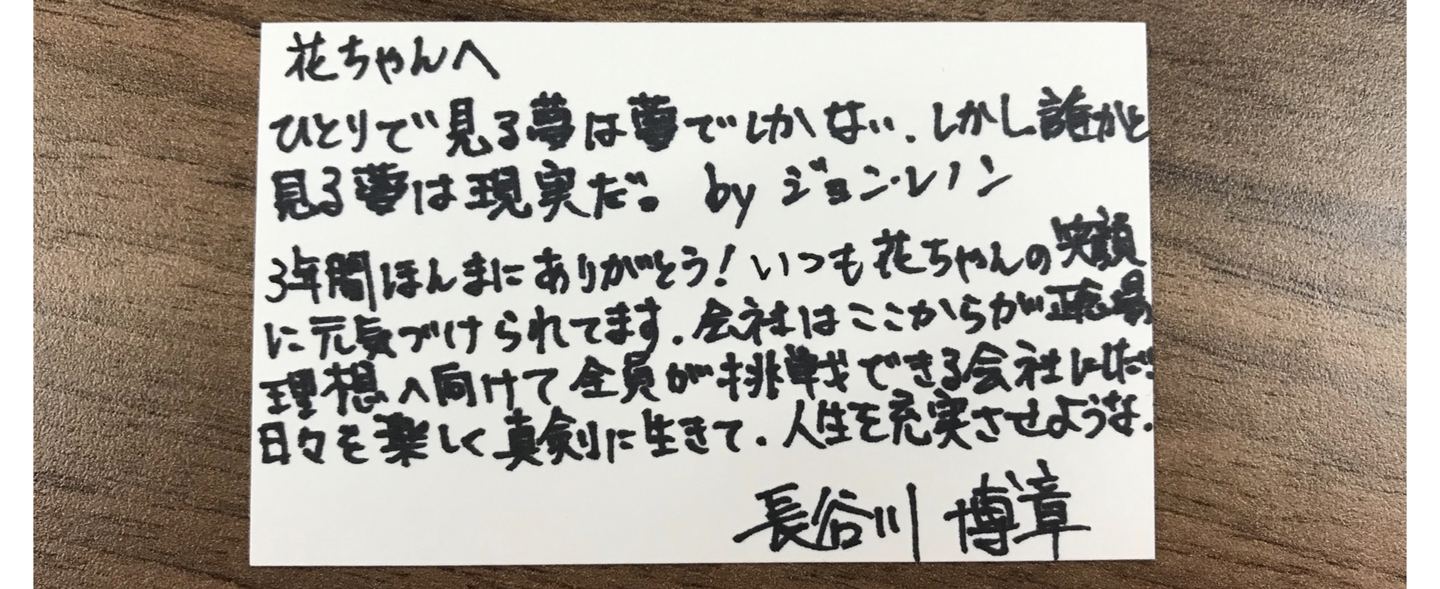 花ちゃんへ
ひとりで見る夢は夢でしかない、しかし誰かと
見る夢は現実だ。 by ジョン・レノン
3年間ほんまにありがとう！いつも花ちゃんの笑顔
に元気づけられてます。会社はここからが正念場
理想へ向けて全員が挑戦できる会社に
日々を楽しく真剣に生きて、人生を充実させような。
長谷川 博章